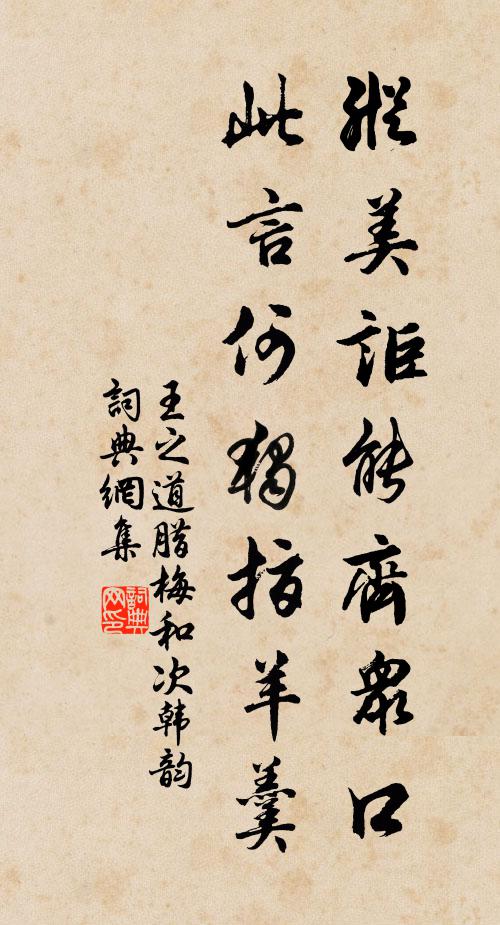 縱美詎能齊眾口
此言何獨指羊羹
王之道腊梅和次韩韵
詞典網集
詞典
网印